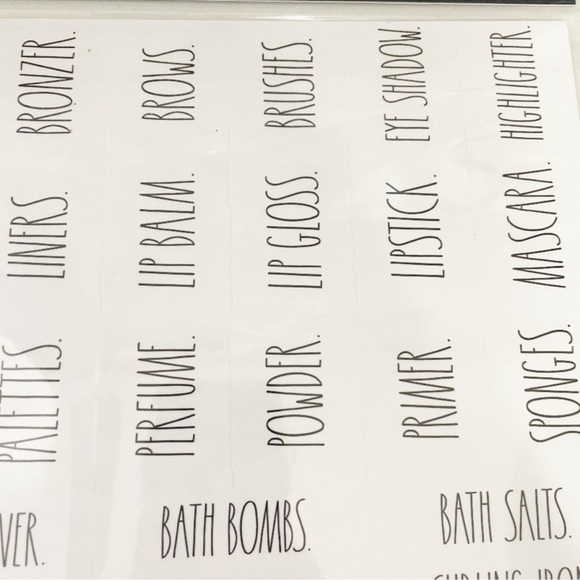 BRONZER.
BROWS.
BRUSHES.
EYE SHADOW.
HIGHLIGHTER.
LINERS.
LIP BALM.
LIP GLOSS.
LIPSTICK.
MASCARA.
PALETTES.
PERFUME.
POWDER.
PRIMER.
SPONGES.
VER.
BATH BOMBS.
BATH SALTS.